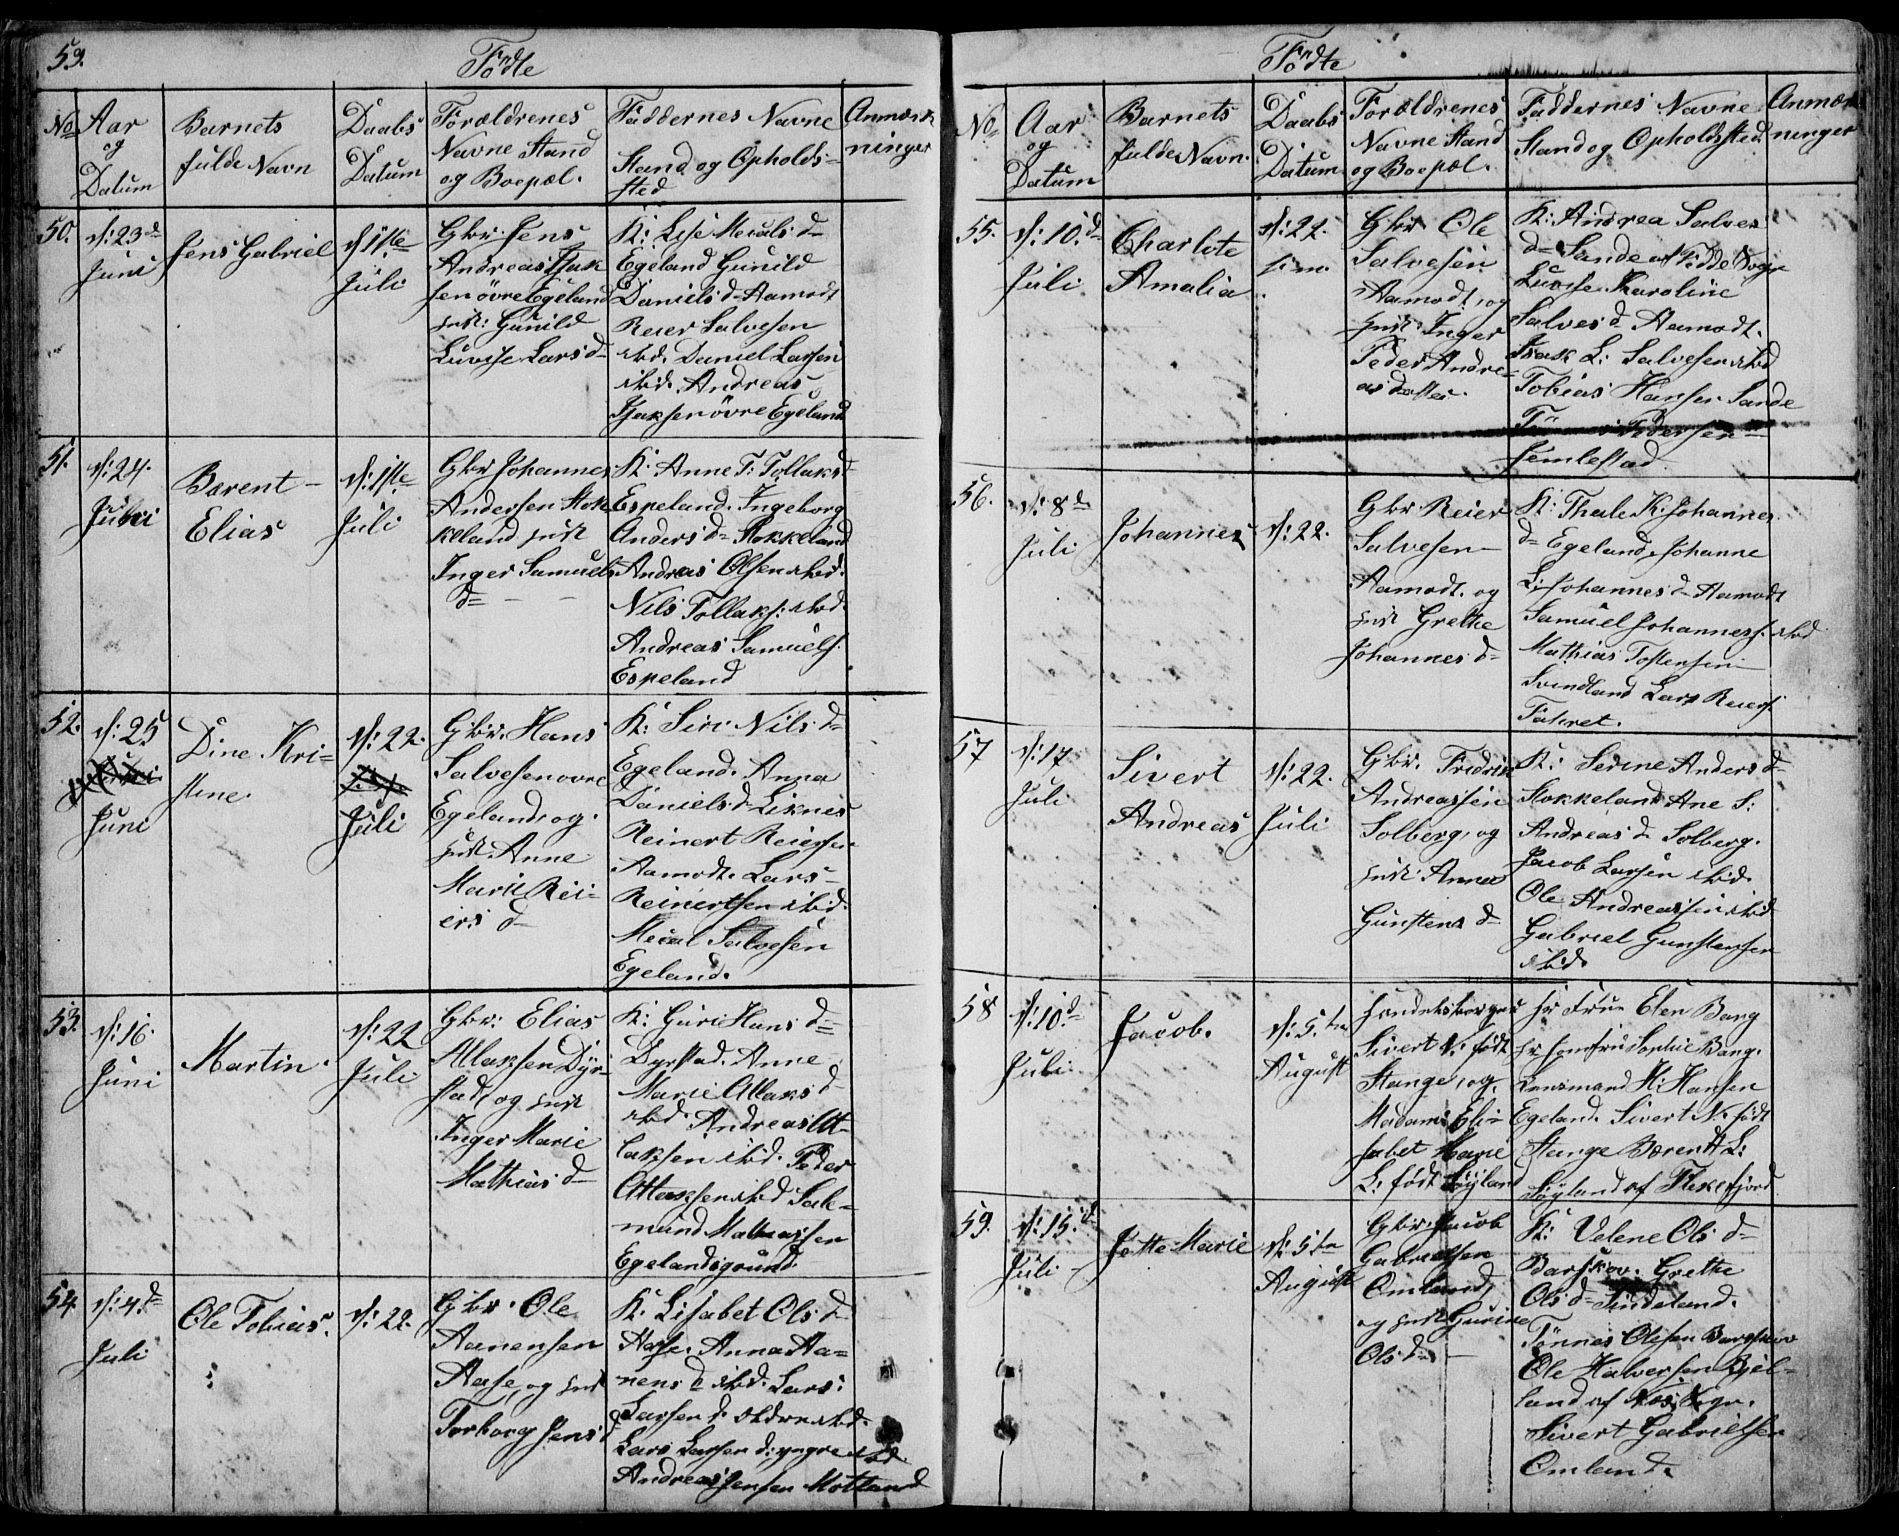 59.
Födte
No
Aar
og
Datum
Barnets
fulde Navn
Daabs
Datum
Forældrenes
Navne Stand
og Boepæl.
Faddernes Navne
Stand og Opholds-
sted
Anmærk
ninger
50.
d: 23d
Juni
Jens Gabriel
d 1ste
Juli
Gbr: Jens
Andreas Isak
sen övre Egeland
Gunild
Luvise Lars d-
K: Lise Meials d-
Egeland Gunild
Daniels d- Aamodt
Reier Salvesen
ibid. Daniel Larsen
ibid. Andreas
Isaksen övre Egeland
51.
d: 24.
Juni
Barent-
Elias
d: 1ste
Juli
Gbr Johannes
Andersen Stok
keland
Inger Samuels
d-
K. Anne T: Tollaks d-
Espeland. Ingeborg
Anders d- Stokkeland
Andreas Olsen ibid.
Nils Tollaks: ibid.
Andreas Samuels.
Espeland
52.
d: 25
Juni
Dine Kri-
stine.
d: 22.
Juli
Gbr. Hans
Salvesen ovre
Egeland, og
Anne
Marie Rei-
ers d-
K: Siri Nils d-
Egeland. Anna
Daniels d- Liknes
Reinert Reiersen
Aamodt. Lars-
Reinertsen ibid.
Meial Salvesen
Egeland.
53.
d: 16.
Juni
Martin.
d: 22
Juli
Gbr: Elias
Atlaksen Dyr-
stad, og
Inger Marie
Mathias d-
K: Guri Hans d-
Dyrstad. Anne
Marie Atlaks d-
ibid. Andreas At-
laksen ibid. Peder
Atlaksen ibid Sal-
mund Mathiassen
Egelandsgrund
54.
d: 4.d
Juli
Ole Tobias.
d: 22.
Gbr. Ole
Aanensen
Aase, og
Torborg Jens d
K: Lisabet Ols d-
Aase. Anna Aa-
nens d ibid. Lars:
Larsen d: ældre ibid.
Lars Larsen d: yngre ibid
Andreas Jensen Motland
Födte
No
Aar
og
Datum
Barnets
fulde Navn.
Daabs
Datum
Forældrenes
Navne Stand
og Boepæl.
Faddernes Navne
Stand og Opholdsted
Anmærk
ninger
55.
d: 10.d
Juli
Charlote
Amalia
d: 22.
Gbr Ole
Salvesen
Aamodt, og
Inger
Peder Andre-
as datter.
K: Andrea Salves
d- Sande af Fedde Sogn
Luvise Karoline
Salves d- Aamodt.
Isak L: Salvesen ibid
Tobias Hansen Sande
Pedersen
Jemlestad
56.
d: 8d
Juli
Johannes
d: 22.
Gbr Reier
Salvesen
Aamodt. og
Grethe
Johannes d-
K: Thale K. Johannes
d- Egeland. Johanne
L: Johannes d- Aamodt
Samuel Johanness. ibid
Mathias Tostensen
Svindland Lars Reiers
57
d: 17
Juli
Sivert
Andreas
d: 22.
Juli
Gbr. Fredrik
Andreassen
Solberg, og
Anna
Gunstens d-
K: Serine Anders d-
Stokkeland Ane S:
Andreas d- Solberg.
Jacob Larsen ibid.
Ole Andreassen ibid
Gabriel Gunstensen
ibid.
58
d: 10.d
Juli.
Jacob.
d: 5.
August
Handelsborger
Sivert N: födt
Stange, og
Madame Eli-
sabet Marie
L: födt Löyland
Fru Elen Bang
Jomfru Sophie Bang.
Lensmand H: Hansen
Egeland. Sivert N: födt
Stange Berent L:
Löyland af Flekefjord
59.
d: 15.d
Juli
Jette Marie
d: 5
August
Gbr Jacob
Gabrielsen
Omland,
og Gurine
Ols d-
K: Velene Ols d-
Barskov. Grethe
Ols d- Sindeland.
Tönnes Olsen Barskov
Ole Halversen Bjel-
land af Sogn.
Sivert Gabrielsen
Omland.